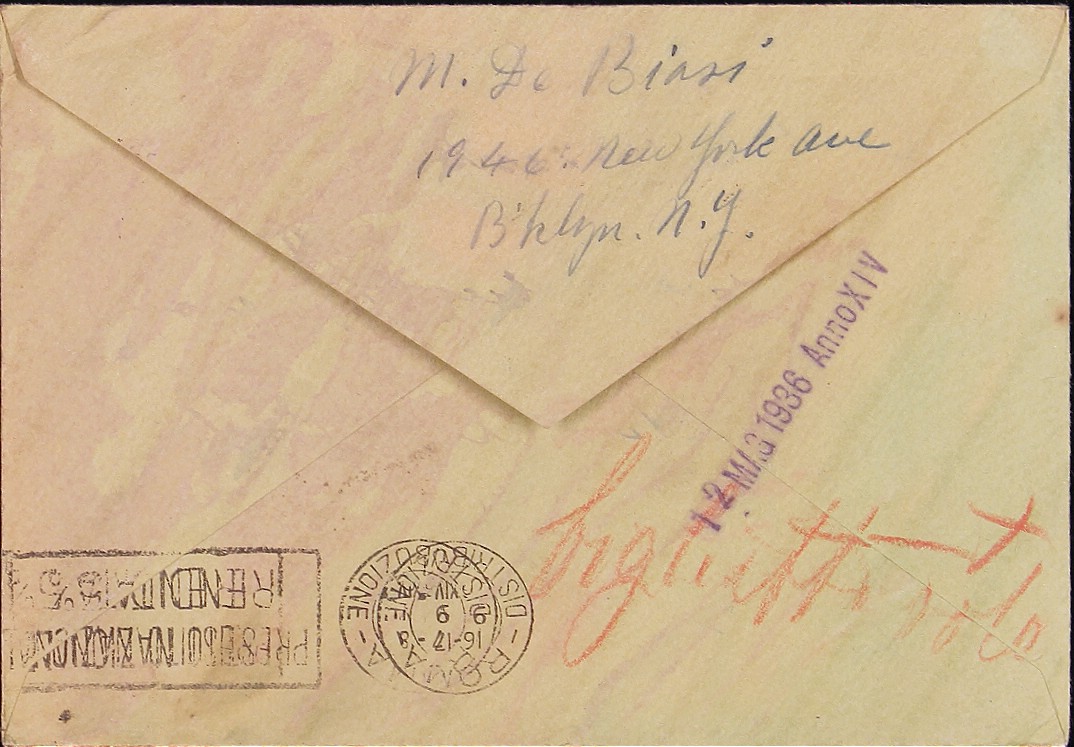 M. De Biasi
1946 New York Ave
B'klyn. N.Y.
12 MAG 1936 Anno XIV
PRESTITO NAZIONALE
RENDITA 5%
ROMA - DISTRIBUZIONE -
16-17
9
XIV